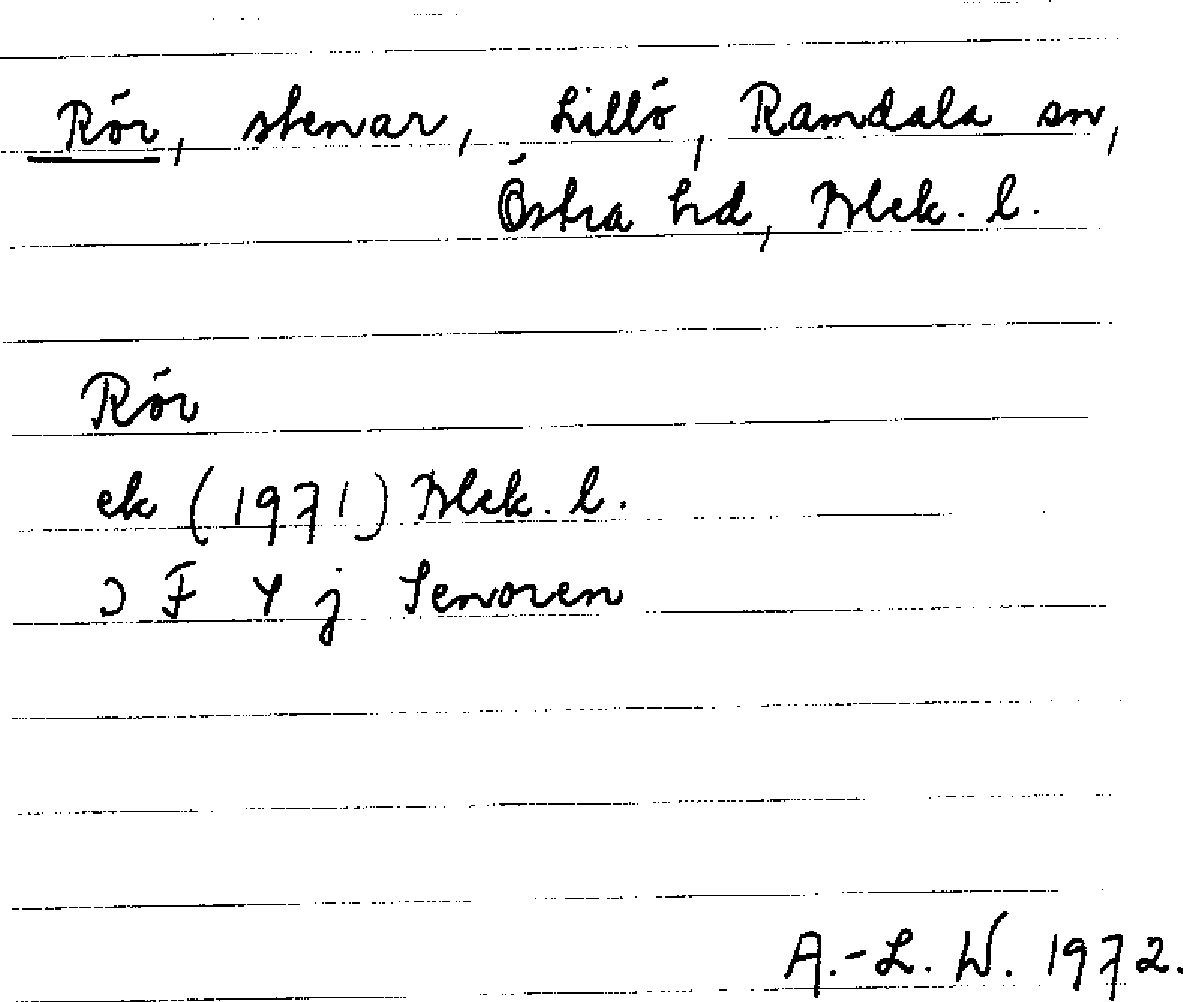 Rör, stenar, Lillö, Ramdala sn,
Östra hd, Blek. l.
Rör
ek (1971) Blek. l.
J F 4 j Senoren
A.-L. W. 1972.